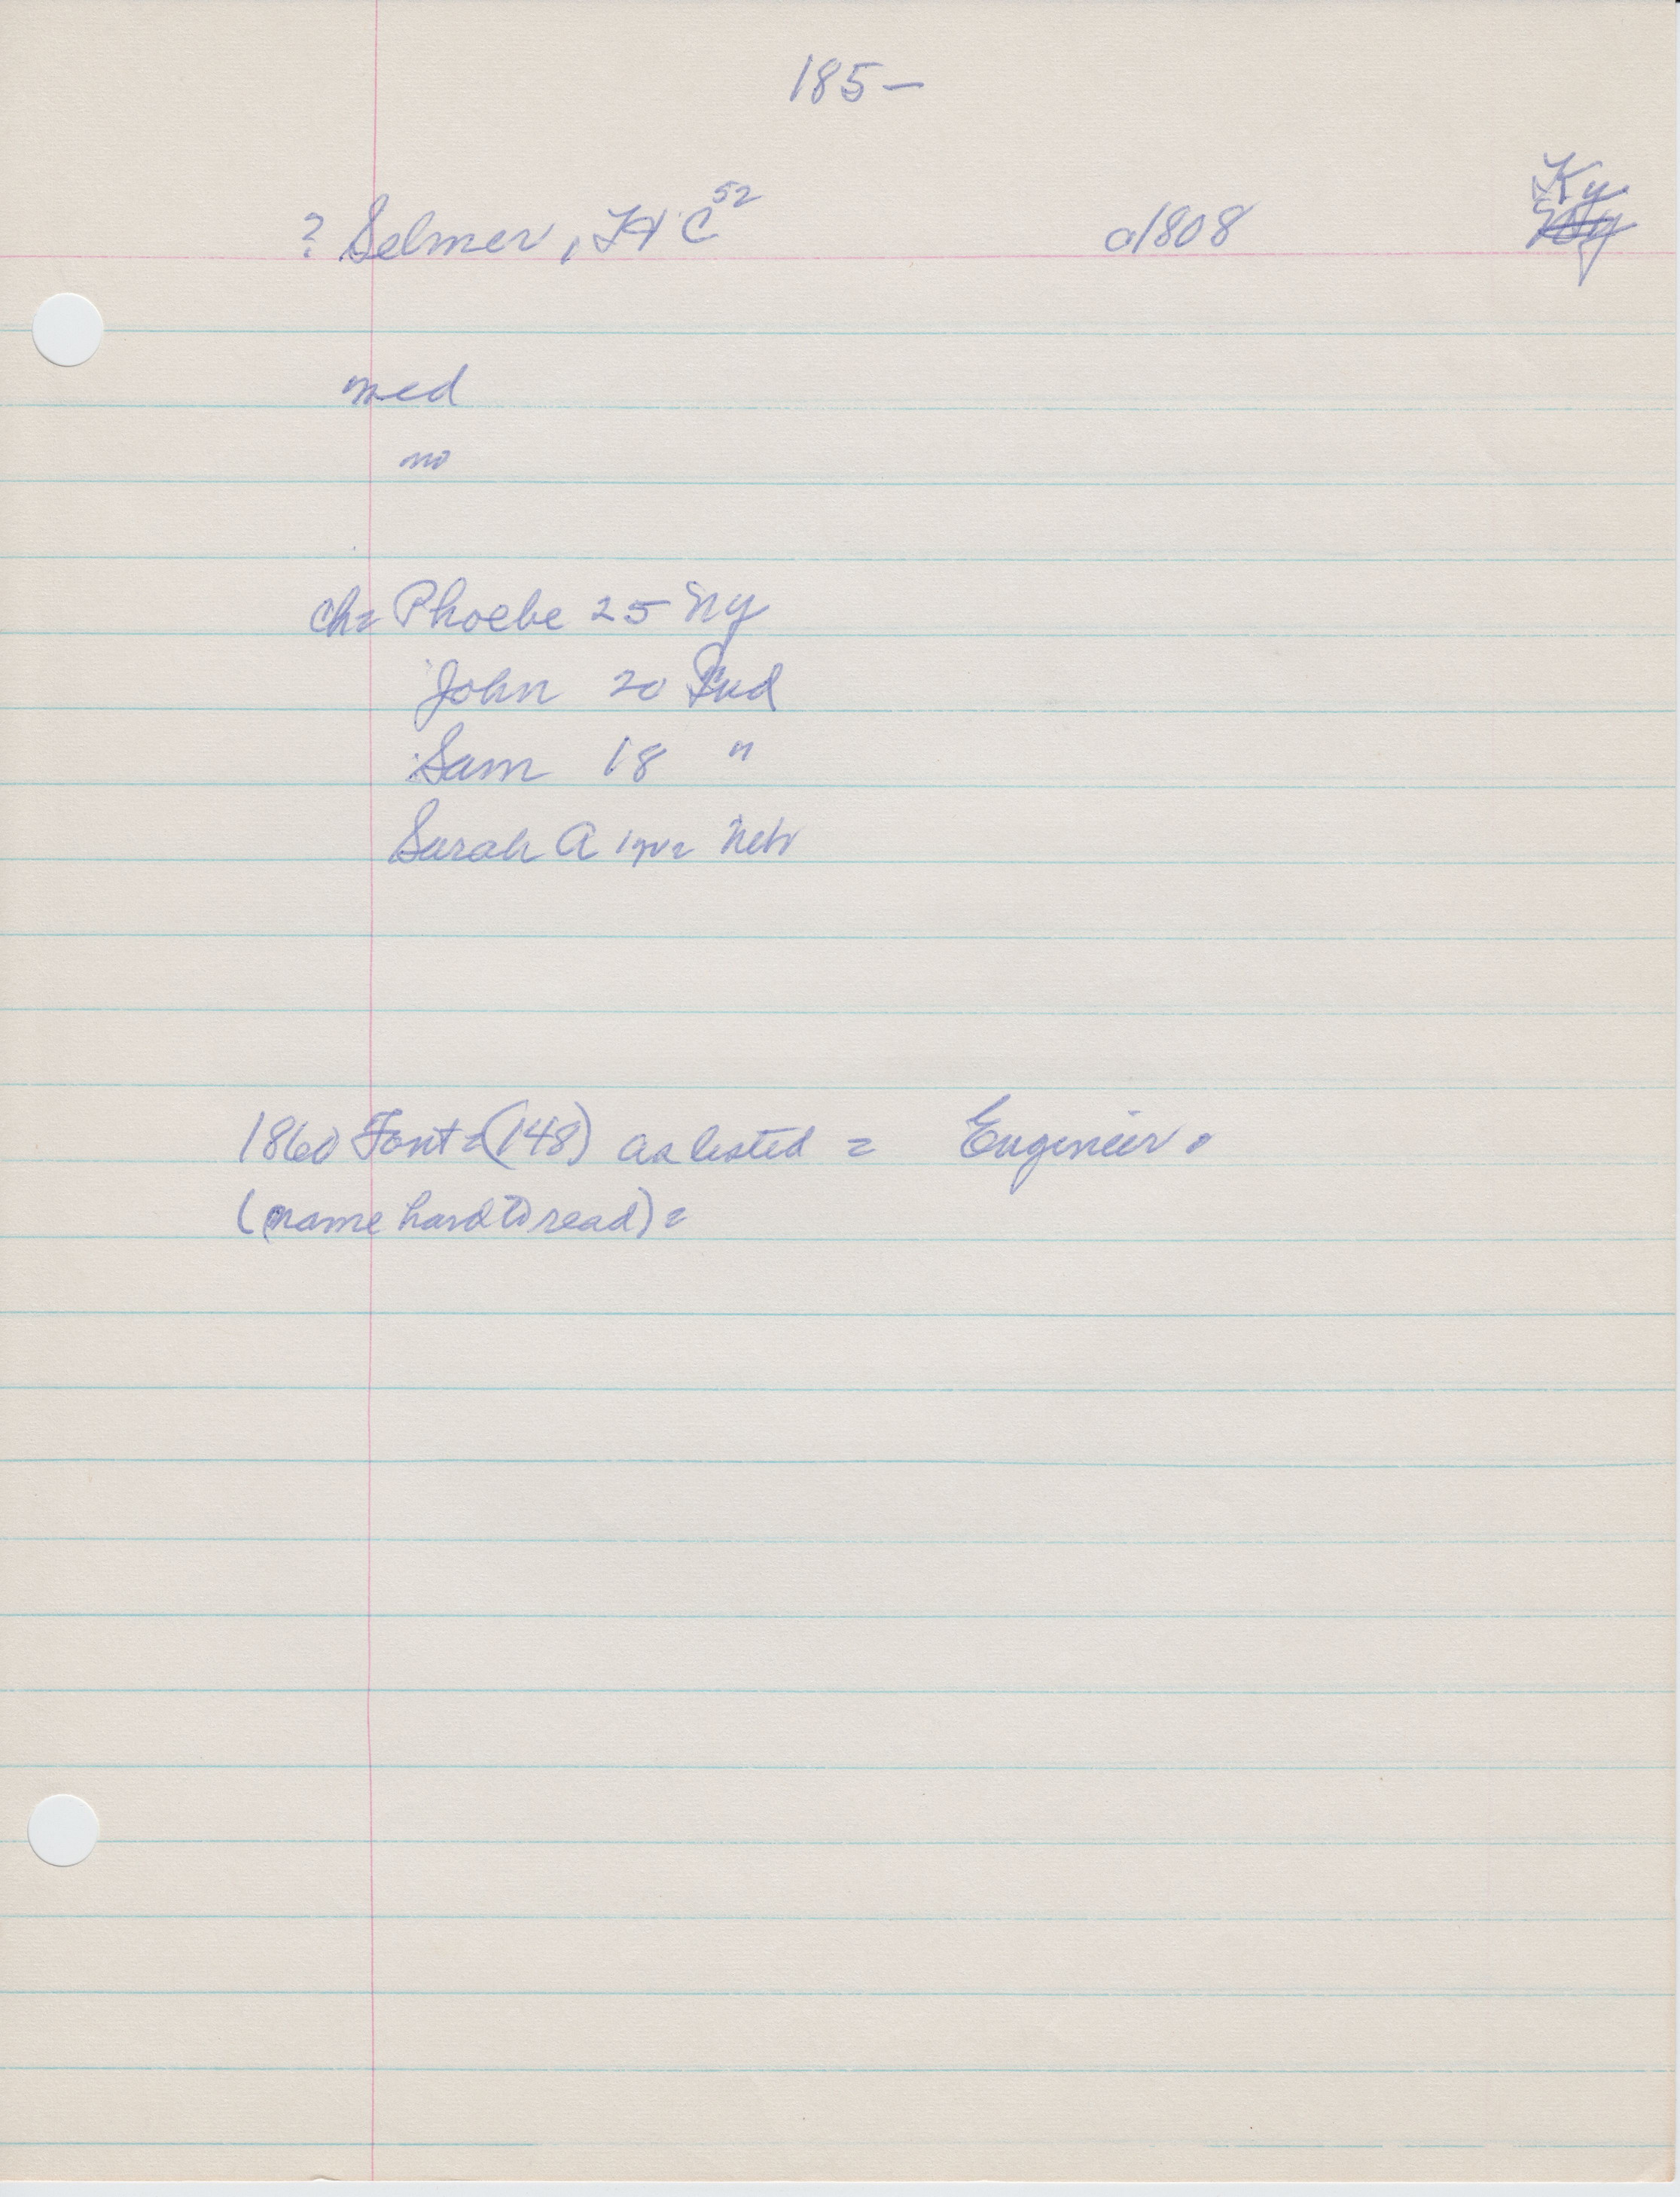 185-
? Selmer, H C 52 a1808 Ky
med
no
ch= Phoebe 25 Ny
John 20 Ind
Sam 18 "
Sarah A 1 Neb
1860 Font=(148) as listed = Engineer.
(name hard to read)=